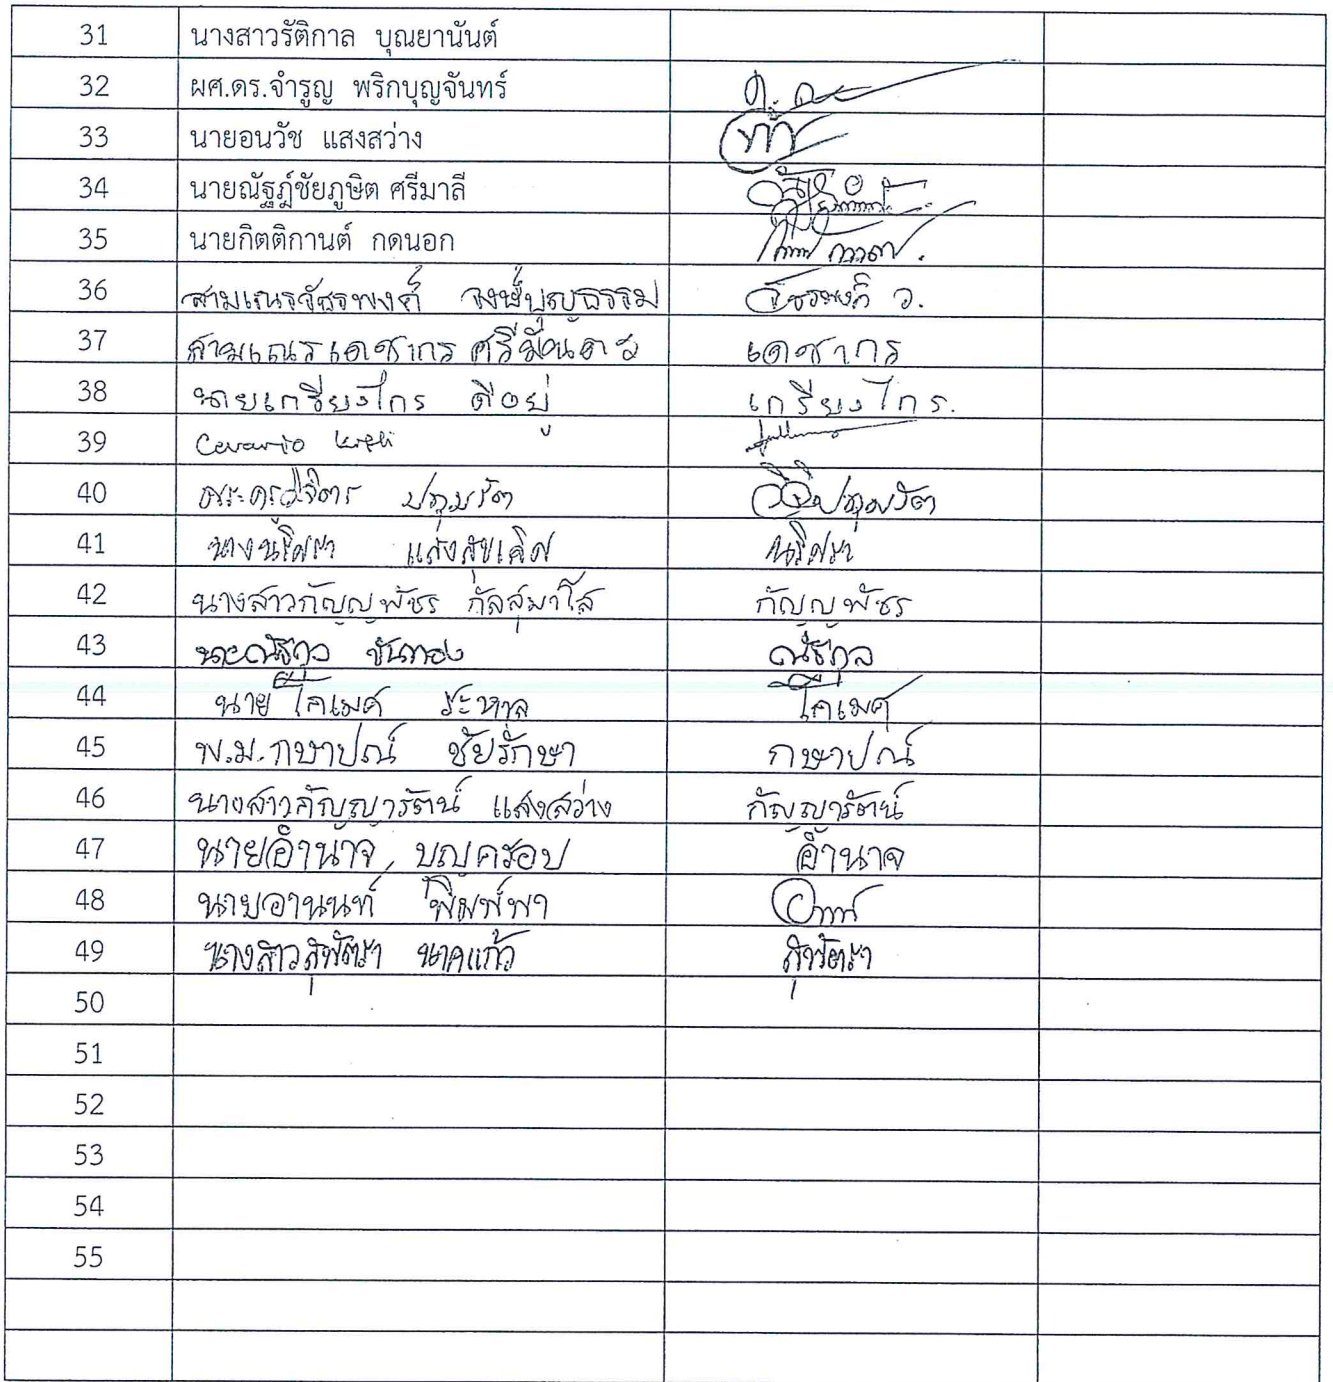 31 นางสาวรัติกาล บุณยานันต์
32 ผศ.ดร.จำรูญ พริกบุญจันทร์
33 นายอนวัช แสงสว่าง
34 นายณัฐฎ์ชัยภูษิต ศรีมาลี
35 นายกิตติกานต์ กดนอก
36 สามเณรวัชรพงศ์ วงษ์บุญธรรม วัชรพงศ์ ว.
37 สามเณรเดชากร เดชากร
38 นายเกรียงไกร ดีอยู่ เกรียงไกร.
39
40 ปทุมรัต
41 นางนริศรา แสงสุขเลิศ นริศรา
42 นางสาวกัญญพัชร กัลสุมาโส กัญญพัชร
43 นายณัฐกุล ขันทอง ณัฐกุล
44 นาย โคเมศ ระหาล โคเมศ
45 พ.ม.กษาปณ์ ชัยรักษา กษาปณ์
46 นางสาวกัญญารัตน์ แสงสว่าง กัญญารัตน์
47 นายอำนาจ บุญครอบ อำนาจ
48 นายอานนท์ พิมพ์พา
49 นางสาวสุพัตรา นาคแก้ว สุพัตรา
50
51
52
53
54
55